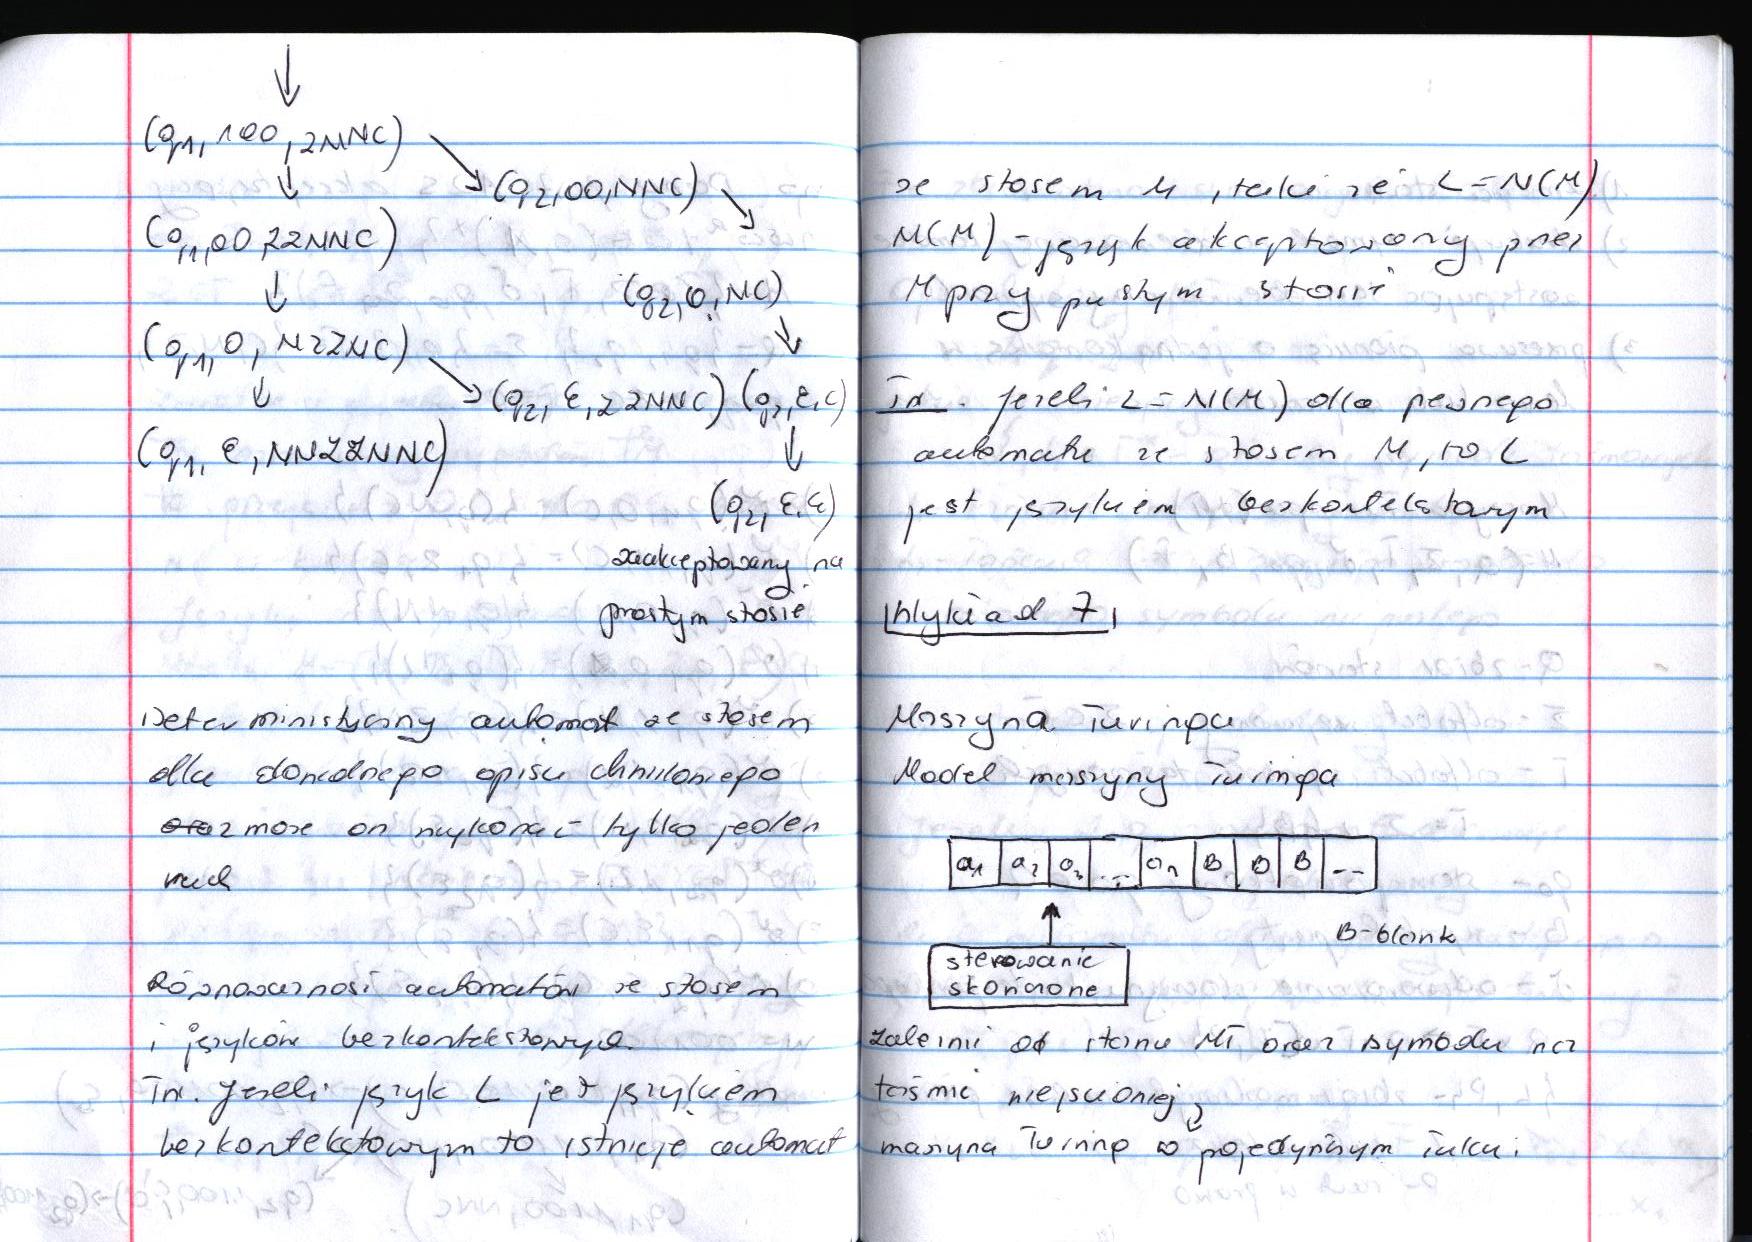 (q1, 100, 2NNC)
(q2, 00, NNC)
(q1, 00, 22NNC)
(q2, 0, NC)
(q1, 0, N22NC)
(q2, ε, 22NNC) (q2, ε, C)
(q1, ε, NN22NNC)
(q2, ε, ε)
zaakceptowany na
prostym stosie
Deterministyczny automat ze stosem
dla dowolnego opisu chwilowego
może on wykonać tylko jeden
ruch
Równoważność automatów ze stosem
i języków bezkontekstowych.
Tw. Jeżeli język L jest językiem
bezkontekstowym to istnieje automat
ze stosem M, taki że L=N(M)
N(M) - język akceptowany przez
M przy pustym stosie
Tw. Jeżeli L=N(M) dla pewnego
automatu ze stosem M, to L
jest językiem bezkontekstowym
Wykład 7
Maszyna Turinga
Model maszyny Turinga
a1 a2 a3 ... an B B B ...
B-blank
sterowanie
skończone
zależnie od stanu MT oraz symbolu na
taśmie
maszyna Turinga w pojedynczym ruchu: